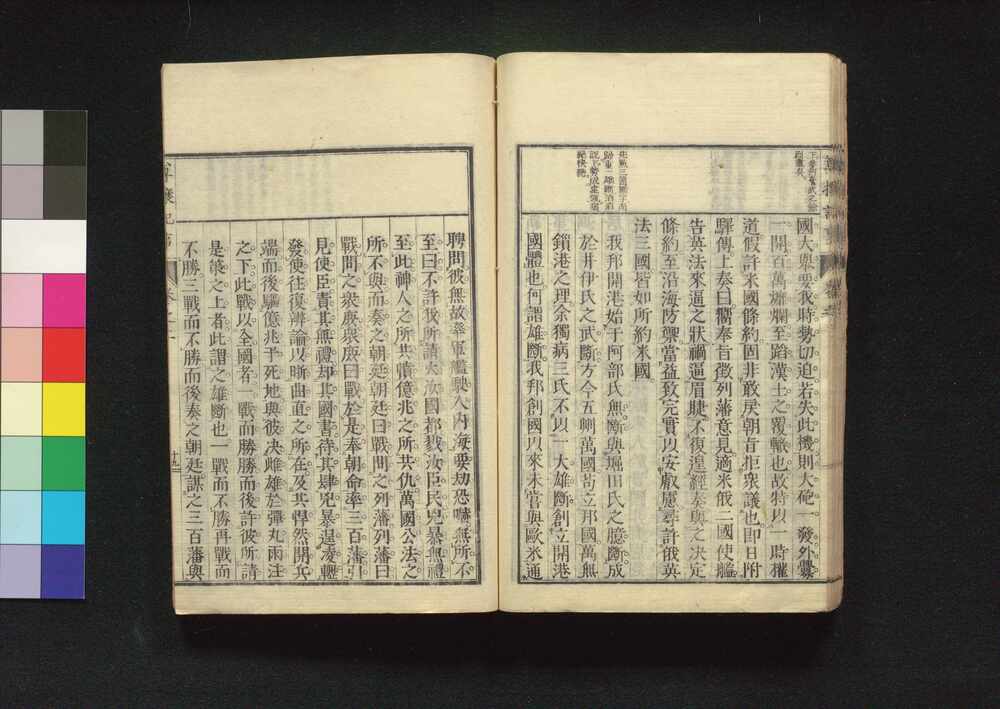 國大與要我時勢切迫若失此機則大砲一發外釁
一開百萬靡爛至蹈漢土之覆轍也故特以一時權
道假許米國條約固非敢戾朝旨拒衆議也即日附
驛傳上奏曰嚮奉旨徵列藩意見適米俄二國使艦
告英法來逼之狀禍逼眉睫不復遑經奏與之決定
條約至沿海防禦當益致完實以安叡慮尋許俄英
法三國皆如所約米國
我邦開港始于阿部氏無斷與堀田氏之臆斷成
於井伊氏之武斷方今五輿萬國苟立邦國萬無
鎖港之理余獨病三氏不以一大雄斷創立開港
國體也何謂雄斷我邦創國以來未嘗與歐米通
聘問彼無故率軍艦駛入內海要劫恐嚇無所不
至曰不許我所請大汝國都戮汝臣民兇暴無禮
至此神人之所共憤億兆之所共仇萬國公法之
所不與而奏之朝廷朝廷曰戰問之列藩列藩曰
戰問之衆庶衆庶曰戰於是奉朝命率三百藩引
見使臣責其無禮却其國書待其肆兇暴逞凌轢
發使往復辨論以晰曲直之所在及其悍然開兵
端而後驅億兆乎死地與彼決雌雄於彈丸雨注
之下此戰以全國者一戰而勝勝而後許彼所請
是策之上者此謂之雄斷也一戰而不勝再戰而
不勝三戰而不勝而後奏之朝廷謀之三百藩與